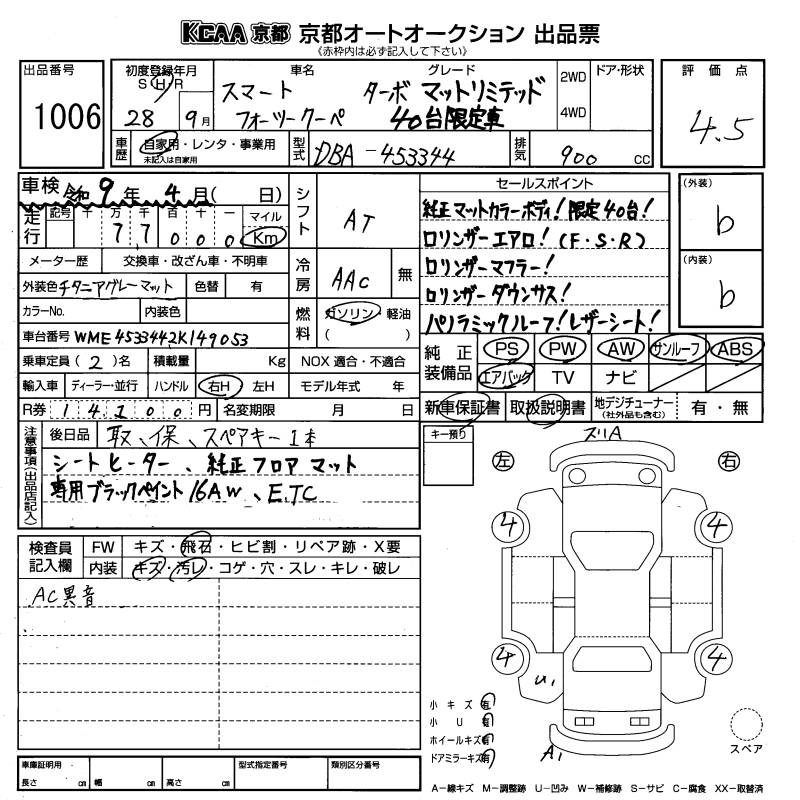 KCAA 京都 京都オートオークション 出品票
《赤枠内は必ず記入して下さい》
出品番号
1006
初度登録年月
S H R
28 9月
車名
スマート
フォーツークーペ
グレード
ターボ マットリミテッド
40台限定車
2WD
4WD
ドア・形状
評価点
4.5
車歴
自家用・レンタ・事業用
未記入は自家用
型式
DBA-453344
排気
900 cc
車検 令和9年4月( 日)
走行
記号 十 万 千 百 十 一 マイル
7 7 0 0 0 Km
シフト
AT
メーター歴 交換車・改ざん車・不明車
外装色 チタニアグレーマット 色替 有
冷房
AAC 無
カラーNo. 内装色
燃料
ガソリン・軽油
( )
車台番号 WME4533442K149053
乗車定員(2)名 積載量 Kg NOX適合・不適合
輸入車 ディーラー・並行 ハンドル 右H 左H モデル年式 年
R券 14100円 名変期限 月 日
セールスポイント
純正マットカラーボディ!限定40台!
ロリンザーエアロ!(F・S・R)
ロリンザーマフラー!
ロリンザーダウンサス!
パノラミックルーフ!レザーシート!
(外装)
b
(内装)
b
純正装備品
PS PW AW サンルーフ ABS
エアバッグ TV ナビ
新車保証書 取扱説明書 地デジチューナー(社外品も含む) 有・無
注意事項(出品店記入)
後日品 取、保、スペアキー1本
シートヒーター、純正フロアマット
専用ブラックペイント16AW、ETC
キー預り
検査員記入欄
FW キズ・飛石・ヒビ割・リペア跡・X要
内装 キズ・汚レ・コゲ・穴・スレ・キレ・破レ
AC異音
左 右
ズリA
4 4
4 4
U1
A1
小キズ 有
小U 有
ホイールキズ 有
ドアミラーキズ 有
スペア
A−線キズ M−調整跡 U−凹み W−補修跡 S−サビ C−腐食 XX−取替済
車庫証明用 型式指定番号 類別区分番号
長さ cm 幅 cm 高さ cm